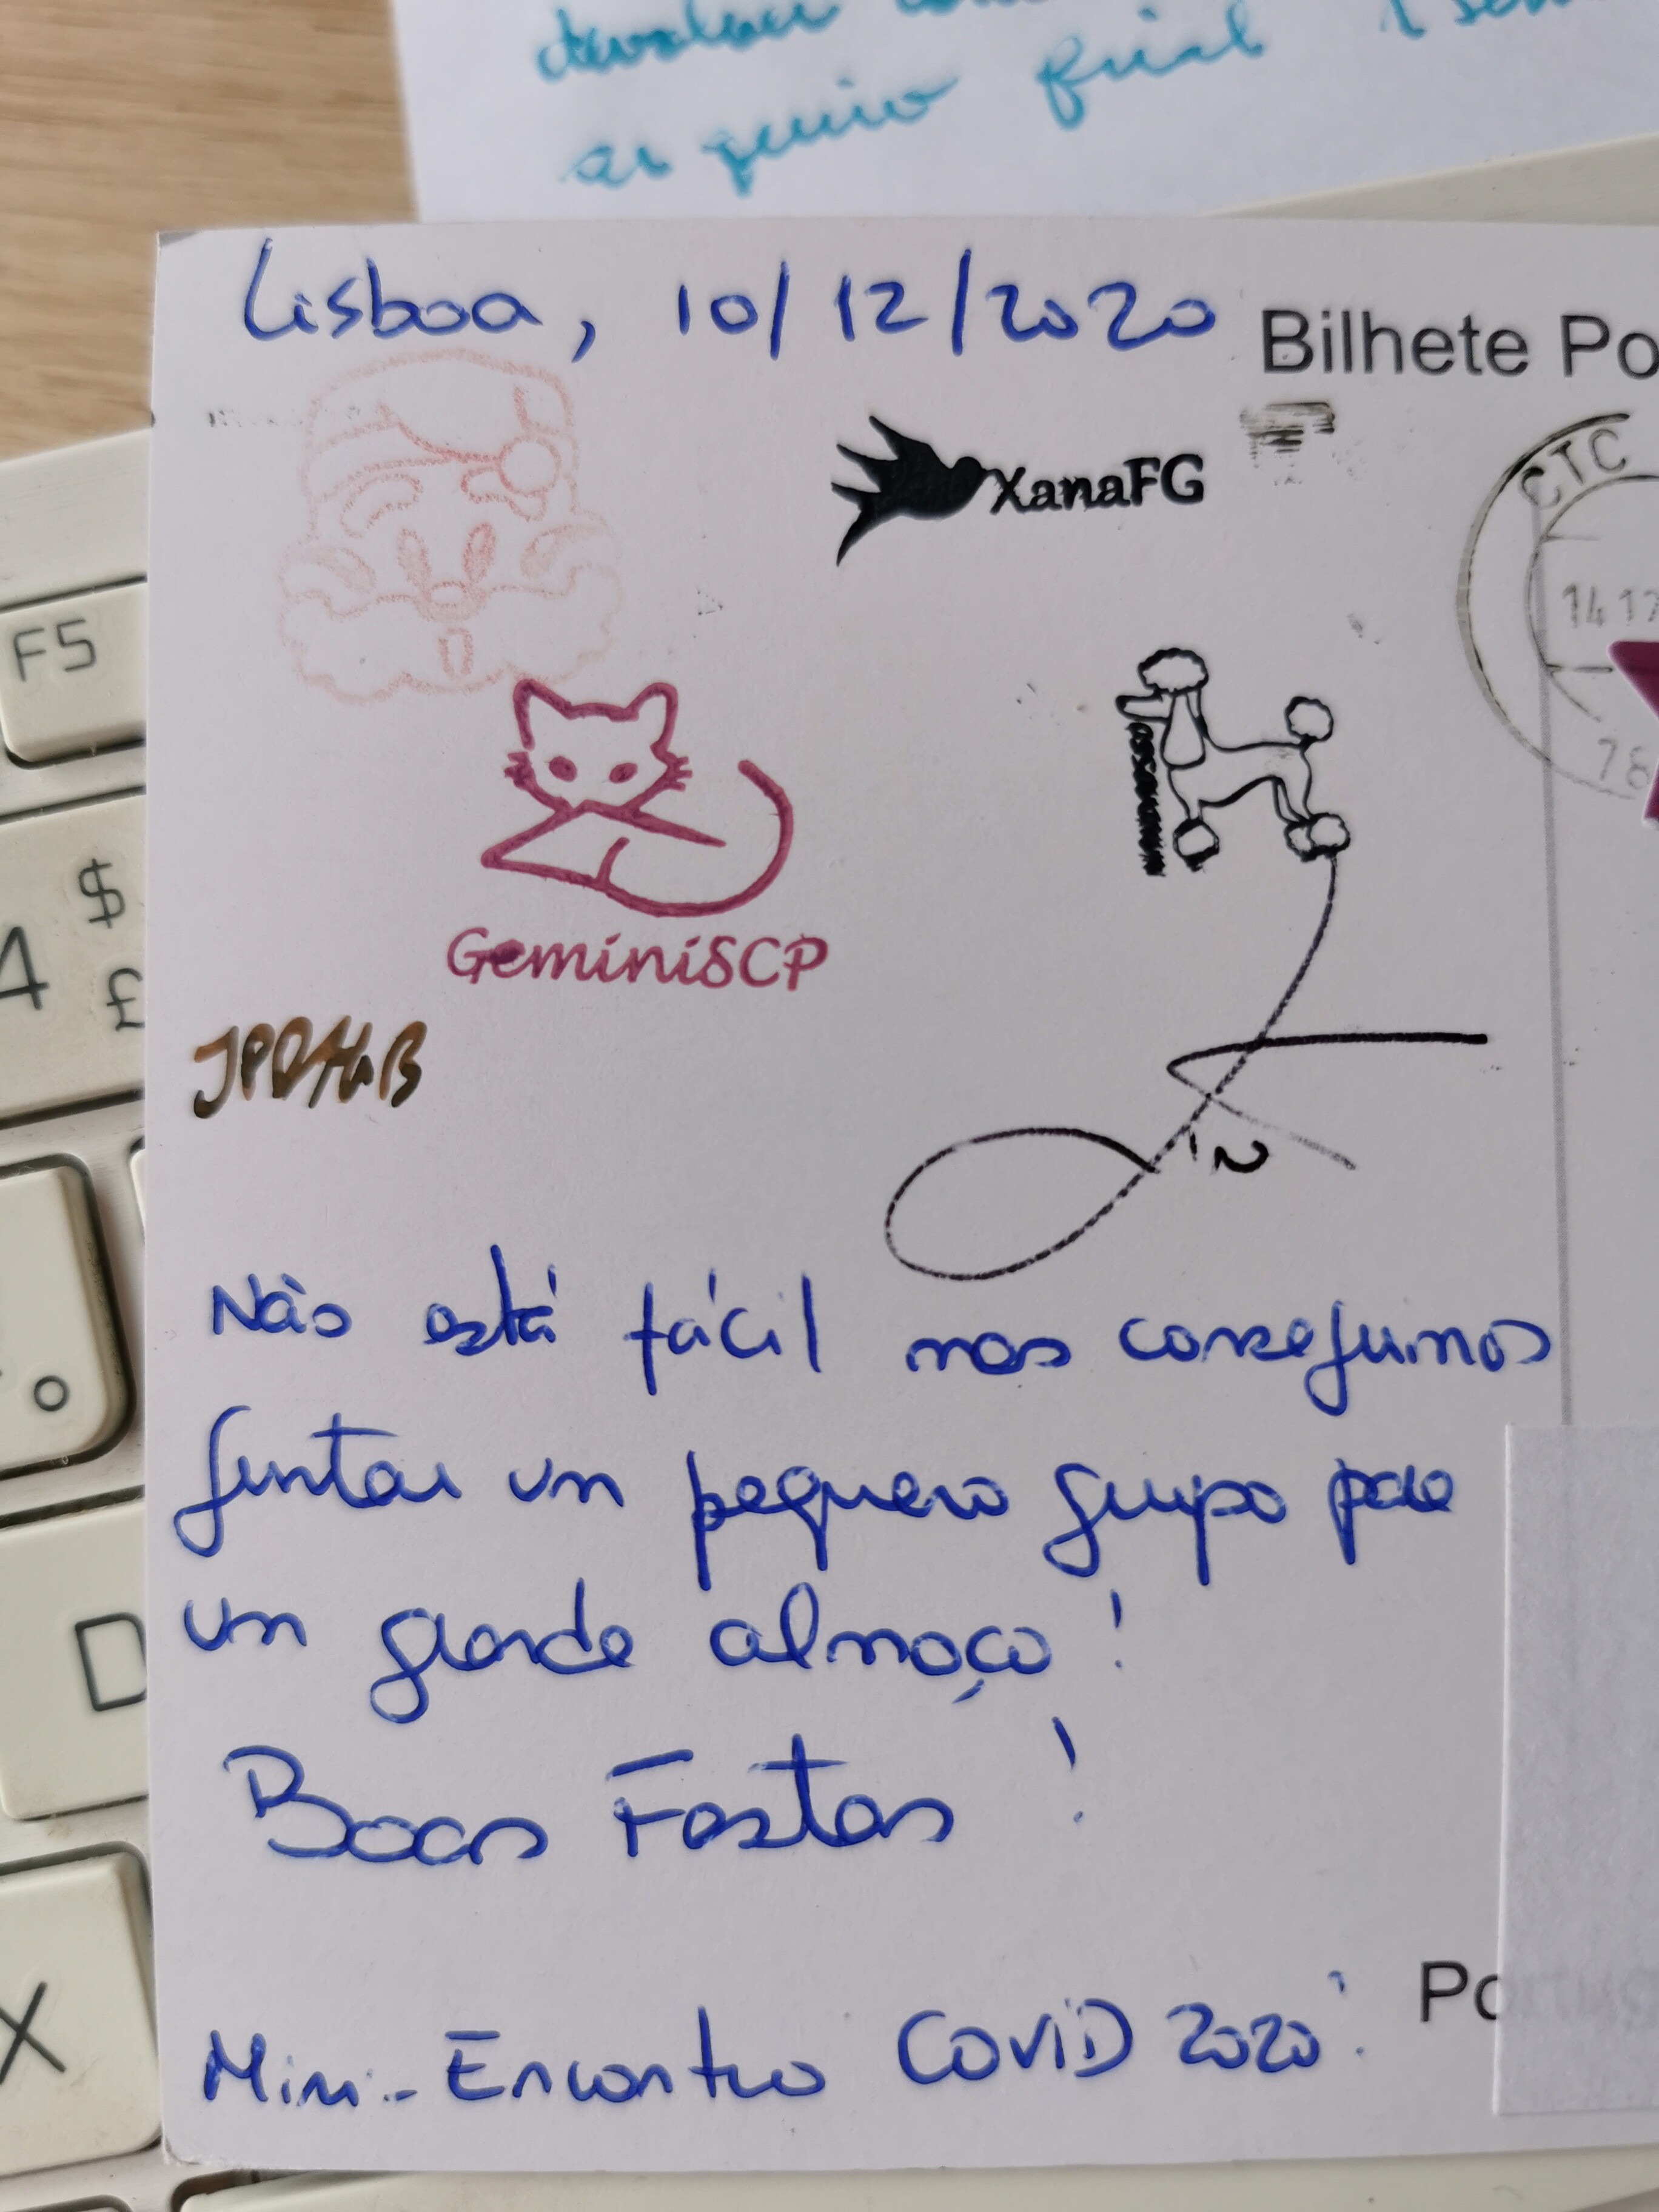 final
Lisboa, 10/12/2020
Bilhete Po
CTC
XanaFG
1412
78
GeminiSCP
Não está fácil mas conseguimos
juntar um pequeno grupo para
um grande almoço!
Boas Festas!
Mini-Encontro COVID 2020!
Po
F5
$
4
£
D
X